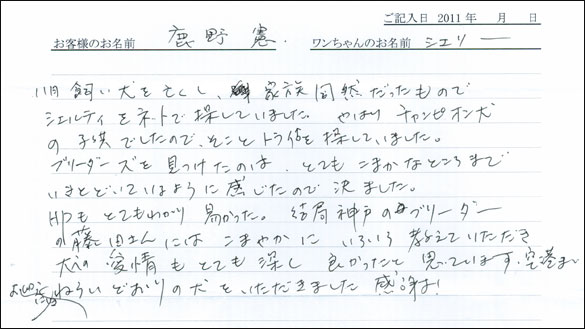 ご記入日 2011年 月 日
お客様のお名前 鹿野 憲. ワンちゃんのお名前 シェリー
11月 飼い犬を亡くし、家族同然だったもので
シェルティをネトで探していました。やはりチャンピオン犬
の子供でしたので、そことトライ台を探していました。
ブリーダーズを見つけたのは、とてもこまかなところまで
いきとどいているように感じたので決ました。
HPもとてもわかり易かった。結局神戸のブリーダー
の藤田さんにはこまやかにいろいろ教えていただき
犬への愛情もとても深し良かったと思っています。空港まで
ねらいどおりの犬をいただきました 感謝!